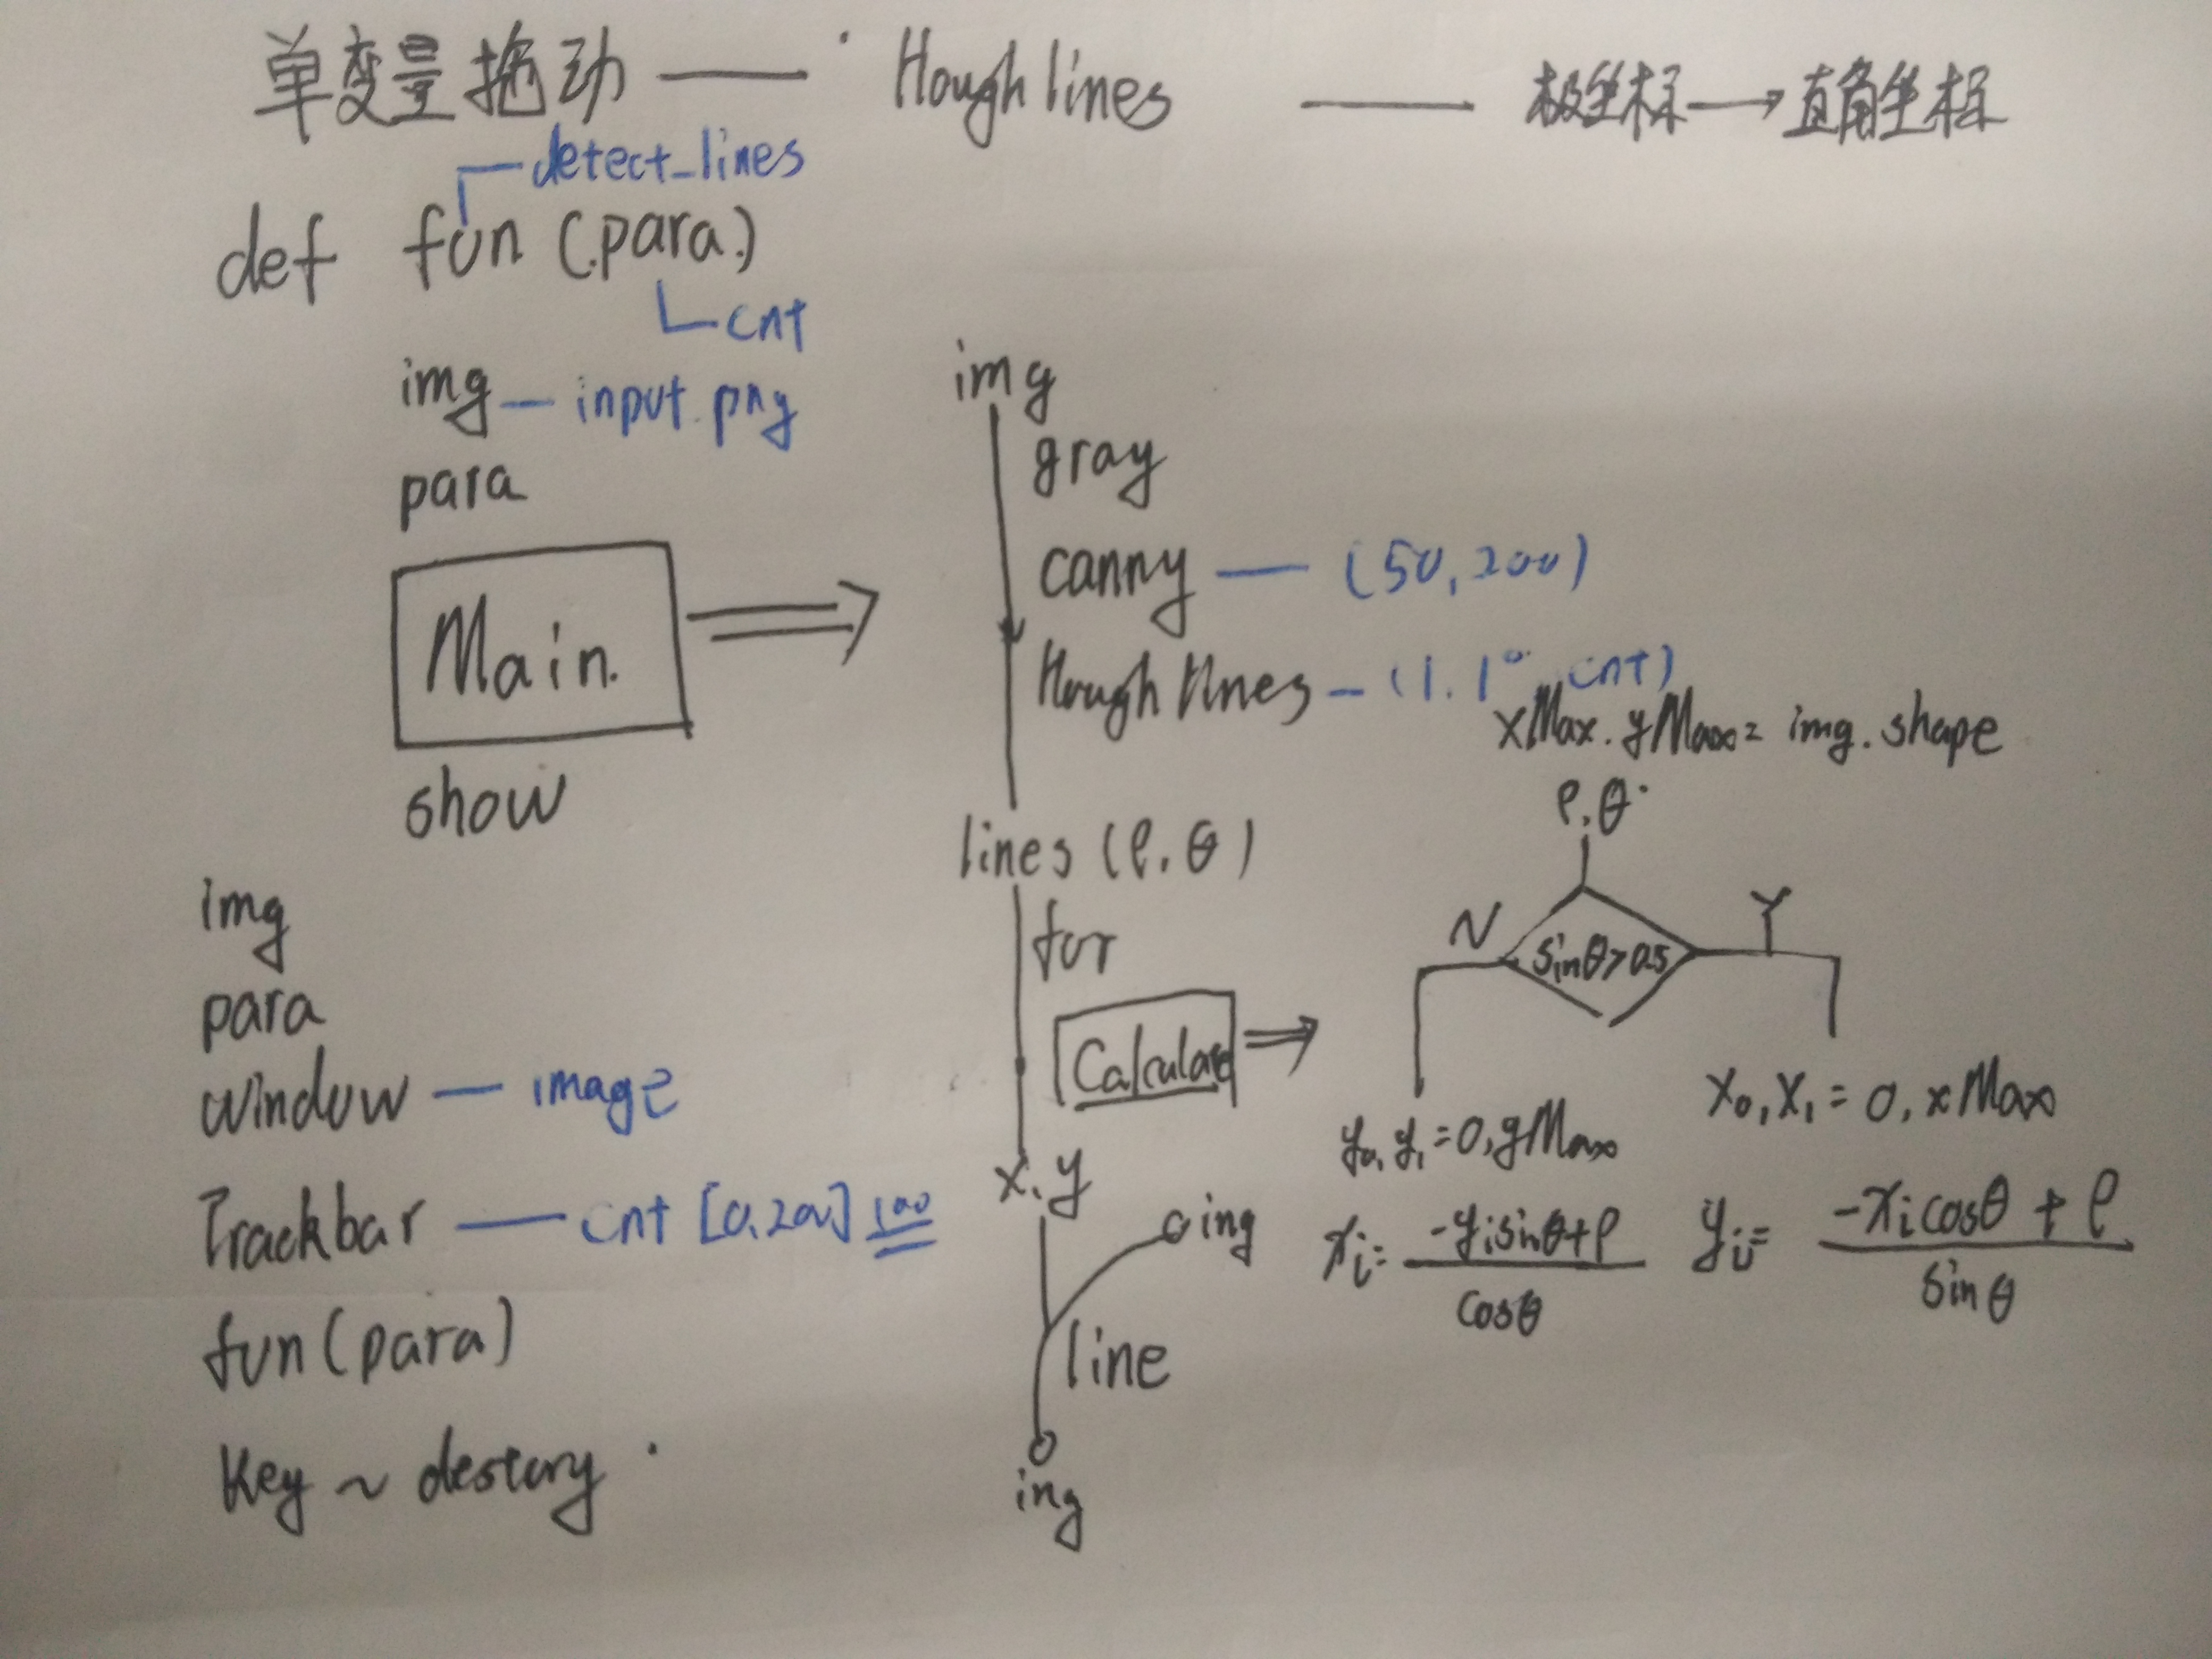 单变量拖动 —— Hough lines —— 极坐标 → 直角坐标
detect_lines
def fun (para)
cnt
img — input.png
para
Main.
show
img
para
window — image
Trackbar — cnt [0,200] 100
fun(para)
Key ~ destory
img
gray
canny — (50,200)
Hough lines — (1.1° cnt)
lines (ρ.θ)
for
Calculate
x.y
img
line
img
xMax.yMax = img.shape
ρ.θ
N sinθ>0.5 Y
y₀,y₁=0,yMax
xᵢ= -yᵢsinθ+ρ / cosθ
x₀,x₁=0,xMax
yᵢ= -xᵢcosθ+ρ / sinθ